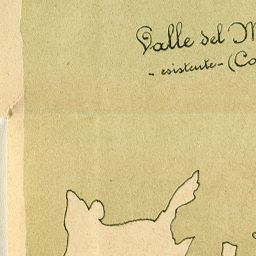 Valle del M
- esistente - (Co